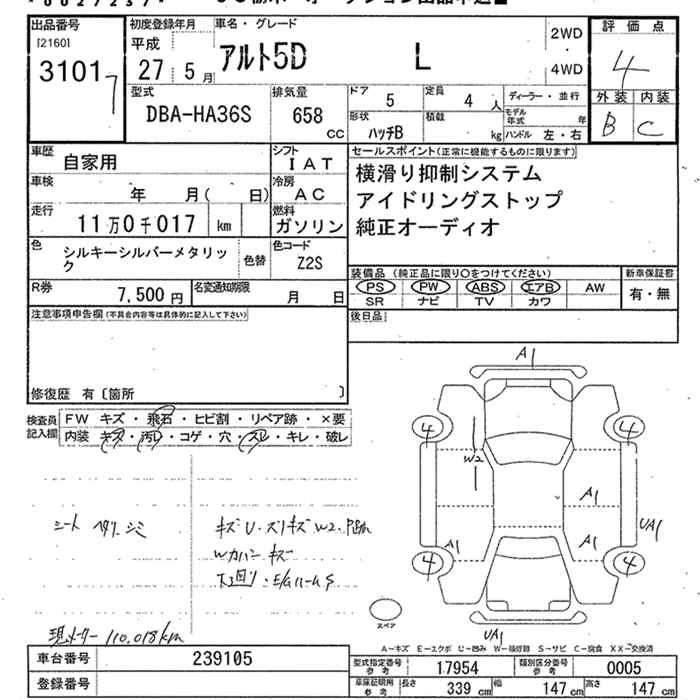 出品番号
[2160]
3101
7
初度登録年月
平成
27 5 月
車名・グレード
アルト5D L
2WD
・
4WD
評価点
4
外装 内装
B C
型式
DBA-HA36S
排気量
658
CC
ドア 5
定員 4 人
ディーラー・並行
形状 ハッチB
積載 kg
モデル年式 年
ハンドル 左・右
車歴 自家用
シフト IAT
車検 年 月( 日)
冷房 AC
走行 11万0千017 km
燃料 ガソリン
色 シルキーシルバーメタリック
色替
色コード Z2S
R券 7,500 円
名変通知期限 月 日
セールスポイント(正常に機能するものに限ります)
横滑り抑制システム
アイドリングストップ
純正オーディオ
装備品 (純正品に限り○をつけてください)
PS PW ABS エアB AW
SR ナビ TV カワ
新車保証書
有・無
後日品
注意事項申告欄(不具合内容等は具体的に記入して下さい)
修復歴 有〔箇所 〕
検査員記入欄
FW キズ・飛石・ヒビ割・リペア跡・×要
内装 キズ・汚レ・コゲ・穴・スレ・キレ・破レ
シート ヘタリ シミ
キズU・スリキズW2・
Wカバーキズ
下回り・E/Gルーム S
現メーター 110,018km
A1
4
4
W2
A1
UA1
A1
4
4
スペア
UA1
A−キズ E−エクボ U−凹み W−補修跡 S−サビ C−腐食 XX−交換済
車台番号 239105
登録番号
型式指定番号 参考 17954
類別区分番号 参考 0005
車庫証明用 参考 長さ 339 cm 幅 147 cm 高さ 147 cm